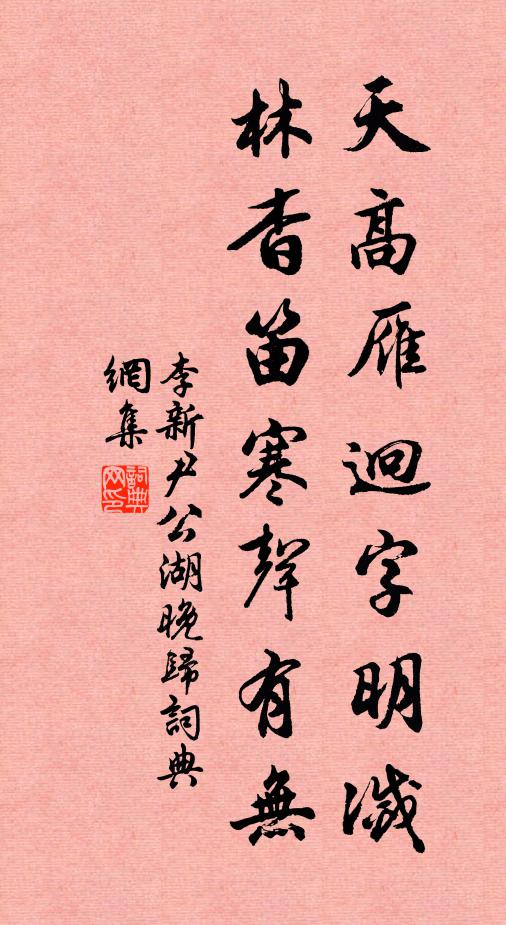 天高雁迴字明滅
林杳笛寒聲有無
李新尹公湖晚歸詞典
網集
詞典網印